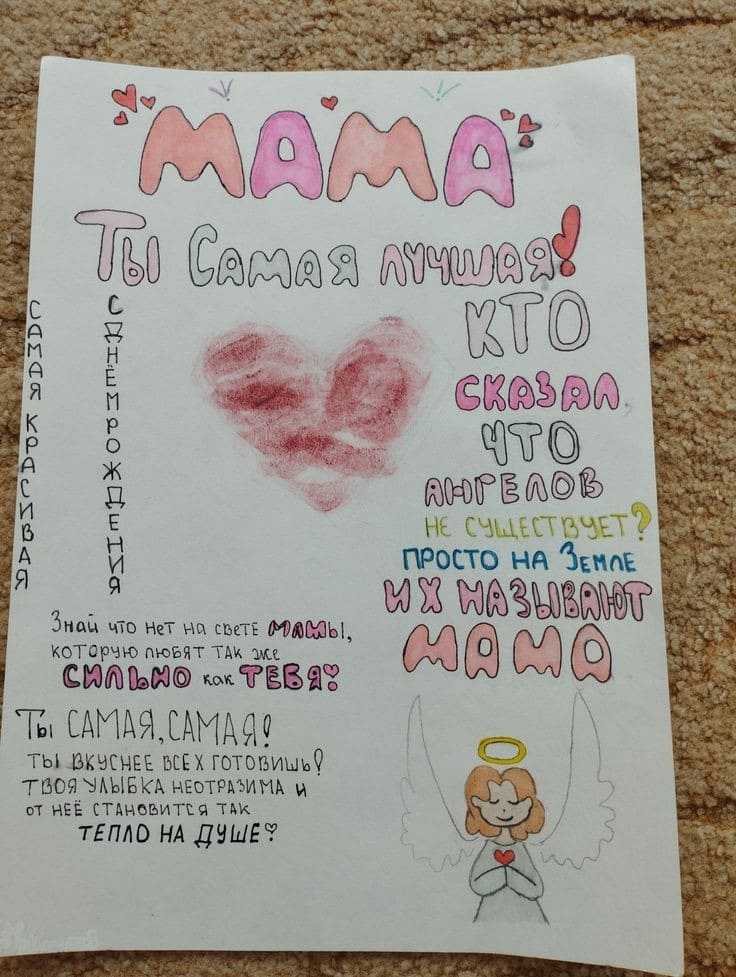 "МАМА"
Ты Самая лучшая!
САМАЯ КРАСИВАЯ
С ДНЁМ РОЖДЕНИЯ
КТО
СКАЗАЛ,
ЧТО
АНГЕЛОВ
НЕ СУЩЕСТВУЕТ?
ПРОСТО НА ЗЕМЛЕ
ИХ НАЗЫВАЮТ
МАМА
Знай что нет на свете МАМЫ,
которую любят так же
СИЛЬНО как ТЕБЯ
Ты САМАЯ, САМАЯ!
ТЫ ВКУСНЕЕ ВСЕХ ГОТОВИШЬ!
ТВОЯ УЛЫБКА НЕОТРАЗИМА И
ОТ НЕЁ СТАНОВИТСЯ ТАК
ТЕПЛО НА ДУШЕ